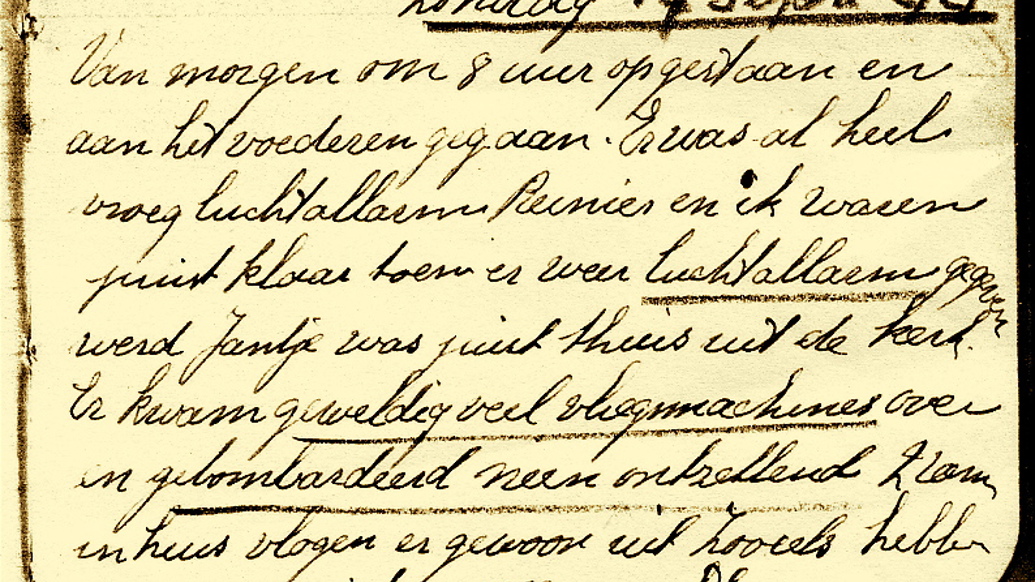 Zondag 17 Sept. 44
Van morgen om 8 uur opgestaan en
aan het voederen gegaan. Er was al heel
vroeg luchtallarm. Reinier en ik waren
juist klaar toen er weer luchtallarm gegeven
werd Jantje was juist thuis uit de kerk.
Er kwam geweldig veel vliegmachines over
en gebombardeerd neen ontzettend
in huis vlogen er gewoon uit zooiets hebben